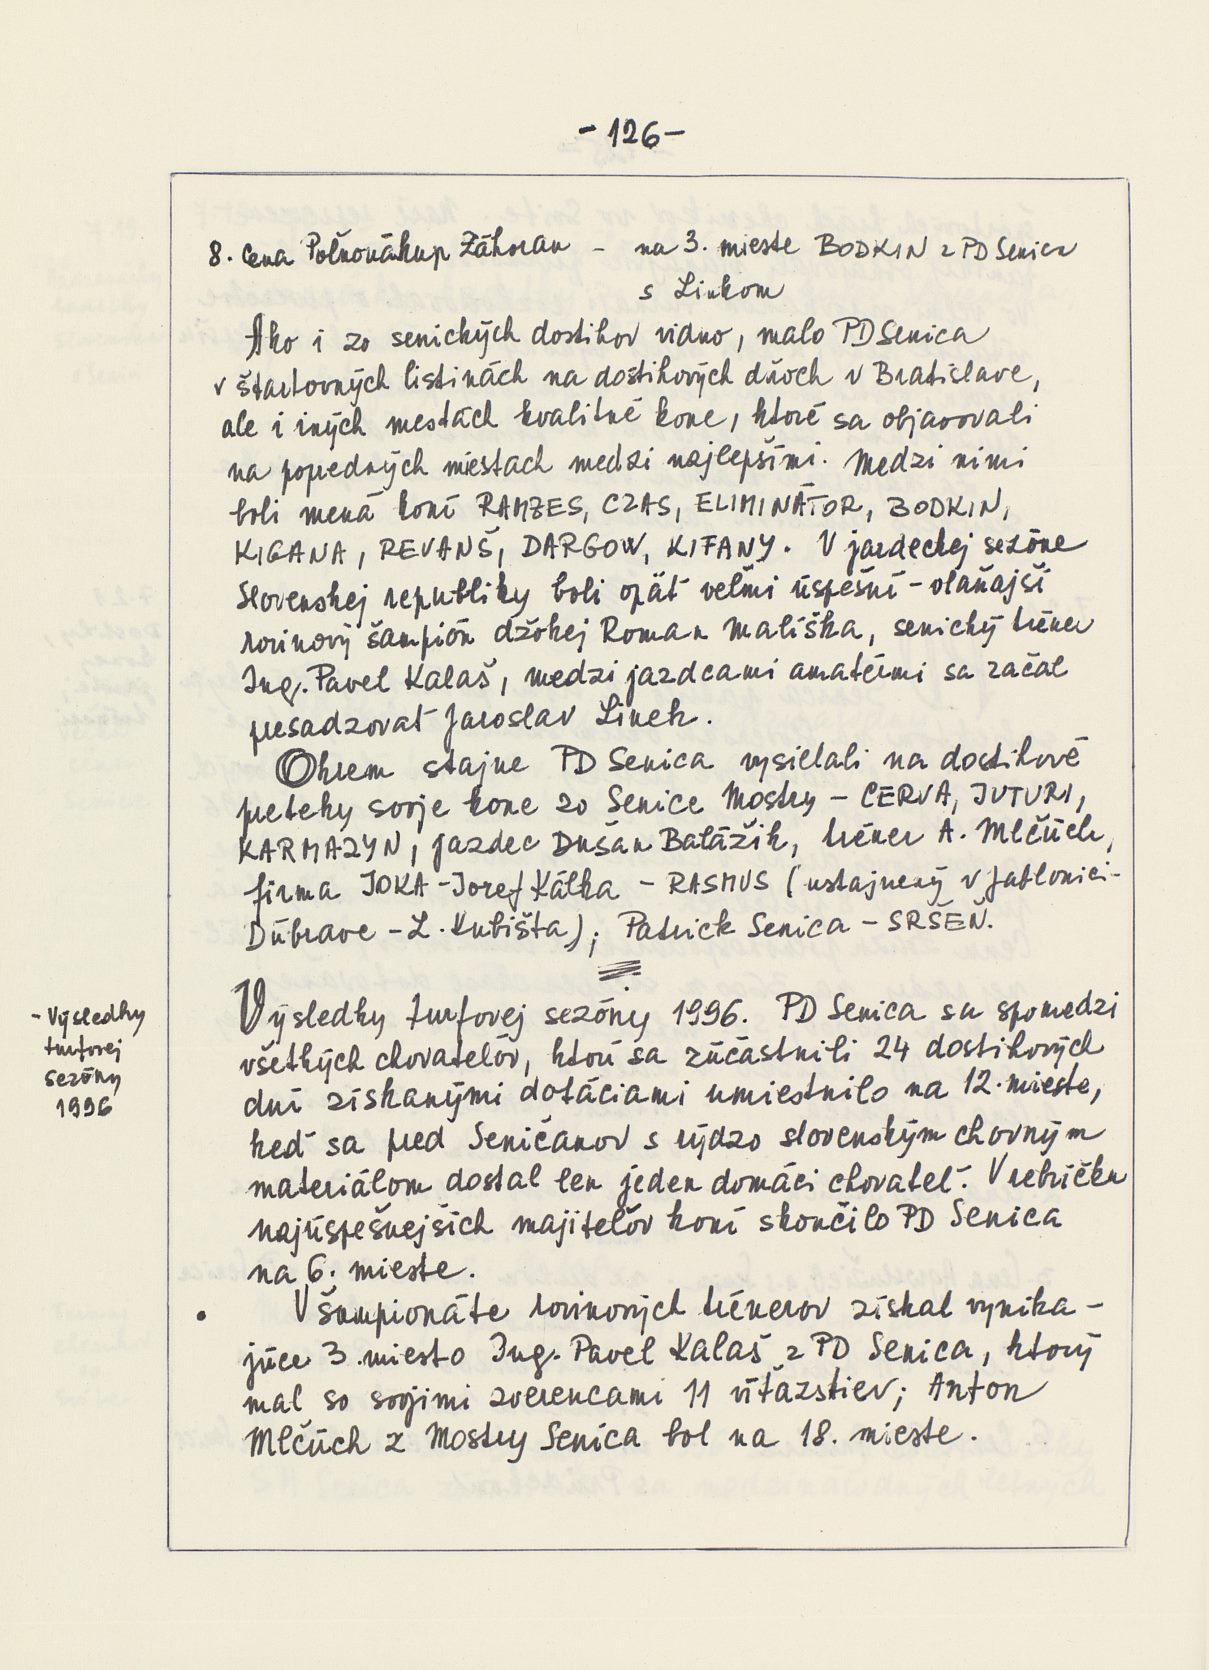 - 126 -
8. Cena Poľnonákup Záhoran - na 3. mieste BODKIN z PD Senica
s Linkom
Ako i zo senických dostihov vidno, malo PD Senica
v štartovných listinách na dostihových dňoch v Bratislave,
ale i iných mestách kvalitné kone, ktoré sa objavovali
na popredných miestach medzi najlepšími. Medzi nimi
boli mená koní RAMZES, CZAS, ELIMINÁTOR, BODKIN,
KIGANA, REVANŠ, DARGOW, KIFANY. V jazdeckej sezóne
Slovenskej republiky boli opäť veľmi úspešní - vlaňajší
rovinový šampión džokej Roman Mališka, senický tréner
Ing. Pavel Kalaš, medzi jazdcami amatérmi sa začal
presadzovať Jaroslav Linek.
Okrem stajne PD Senica vysielali na dostihové
preteky svoje kone zo Senice Mostry - CERVA, JUTURI,
KARMAZYN, jazdec Dušan Balážik, tréner A. Mlčúch,
firma JOKA - Jozef Kálka - RASMUS (ustajnený v Jablonici-
Dúbrave - L. Kubišta); Patrick Senica - SRŠEŇ.
- Výsledky
turfovej
sezóny
1996
Výsledky turfovej sezóny 1996. PD Senica sa spomedzi
všetkých chovateľov, ktorí sa zúčastnili 24 dostihových
dní získanými dotáciami umiestnilo na 12. mieste,
keď sa pred Seničanov s rýdzo slovenským chovným
materiálom dostal len jeden domáci chovateľ. V rebríčku
najúspešnejších majiteľov koní skončilo PD Senica
na 6. mieste.
V šampionáte rovinových trénerov získal vynika-
júce 3. miesto Ing. Pavel Kalaš z PD Senica, ktorý
mal so svojimi zverencami 11 víťazstiev; Anton
Mlčúch z Mostry Senica bol na 18. mieste.